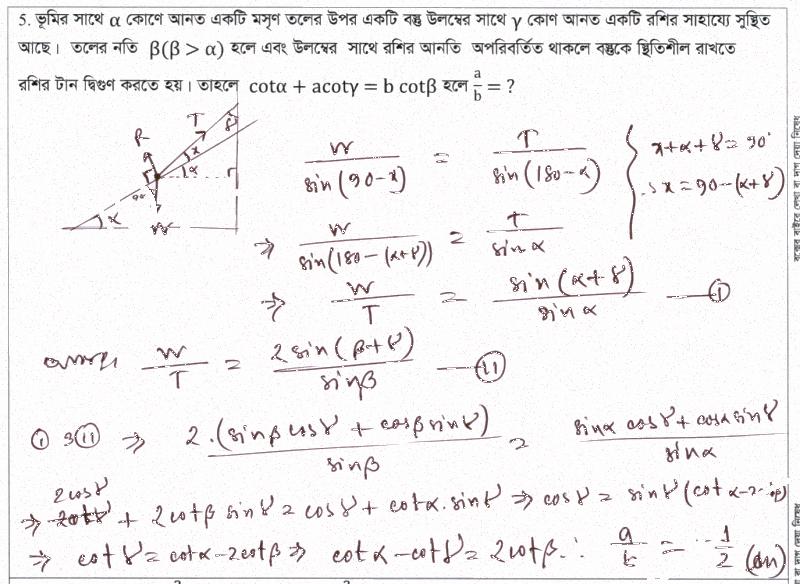 5. ভূমির সাথে α কোণে আনত একটি মসৃণ তলের উপর একটি বস্তু উলম্বের সাথে γ কোণ আনত একটি রশির সাহায্যে সুস্থিত
আছে। তলের নতি β(β > α) হলে এবং উলম্বের সাথে রশির আনতি অপরিবর্তিত থাকলে বস্তুকে স্থিতিশীল রাখতে
রশির টান দ্বিগুণ করতে হয়। তাহলে cotα + acotγ = b cotβ হলে a/b = ?
R T γ x α α W
W/sin(90-x) = T/sin(180-α) x+α+γ = 90°
∴ x = 90-(α+γ)
⇒ W/sin(180-(α+γ)) = T/sinα
⇒ W/T = sin(α+γ)/sinα —— (i)
আবার W/T = 2sin(β+γ)/sinβ —— (ii)
(i) ও (ii) ⇒ 2.(sinβ cosγ + cosβ sinγ)/sinβ = sinα cosγ + cosα sinγ/sinα
⇒ 2cosγ + 2cotβ sinγ = cosγ + cotα. sinγ ⇒ cosγ = sinγ (cotα-2cotβ)
⇒ cotγ = cotα-2cotβ ⇒ cotα-cotγ = 2cotβ ∴ a/b = -1/2 (An)